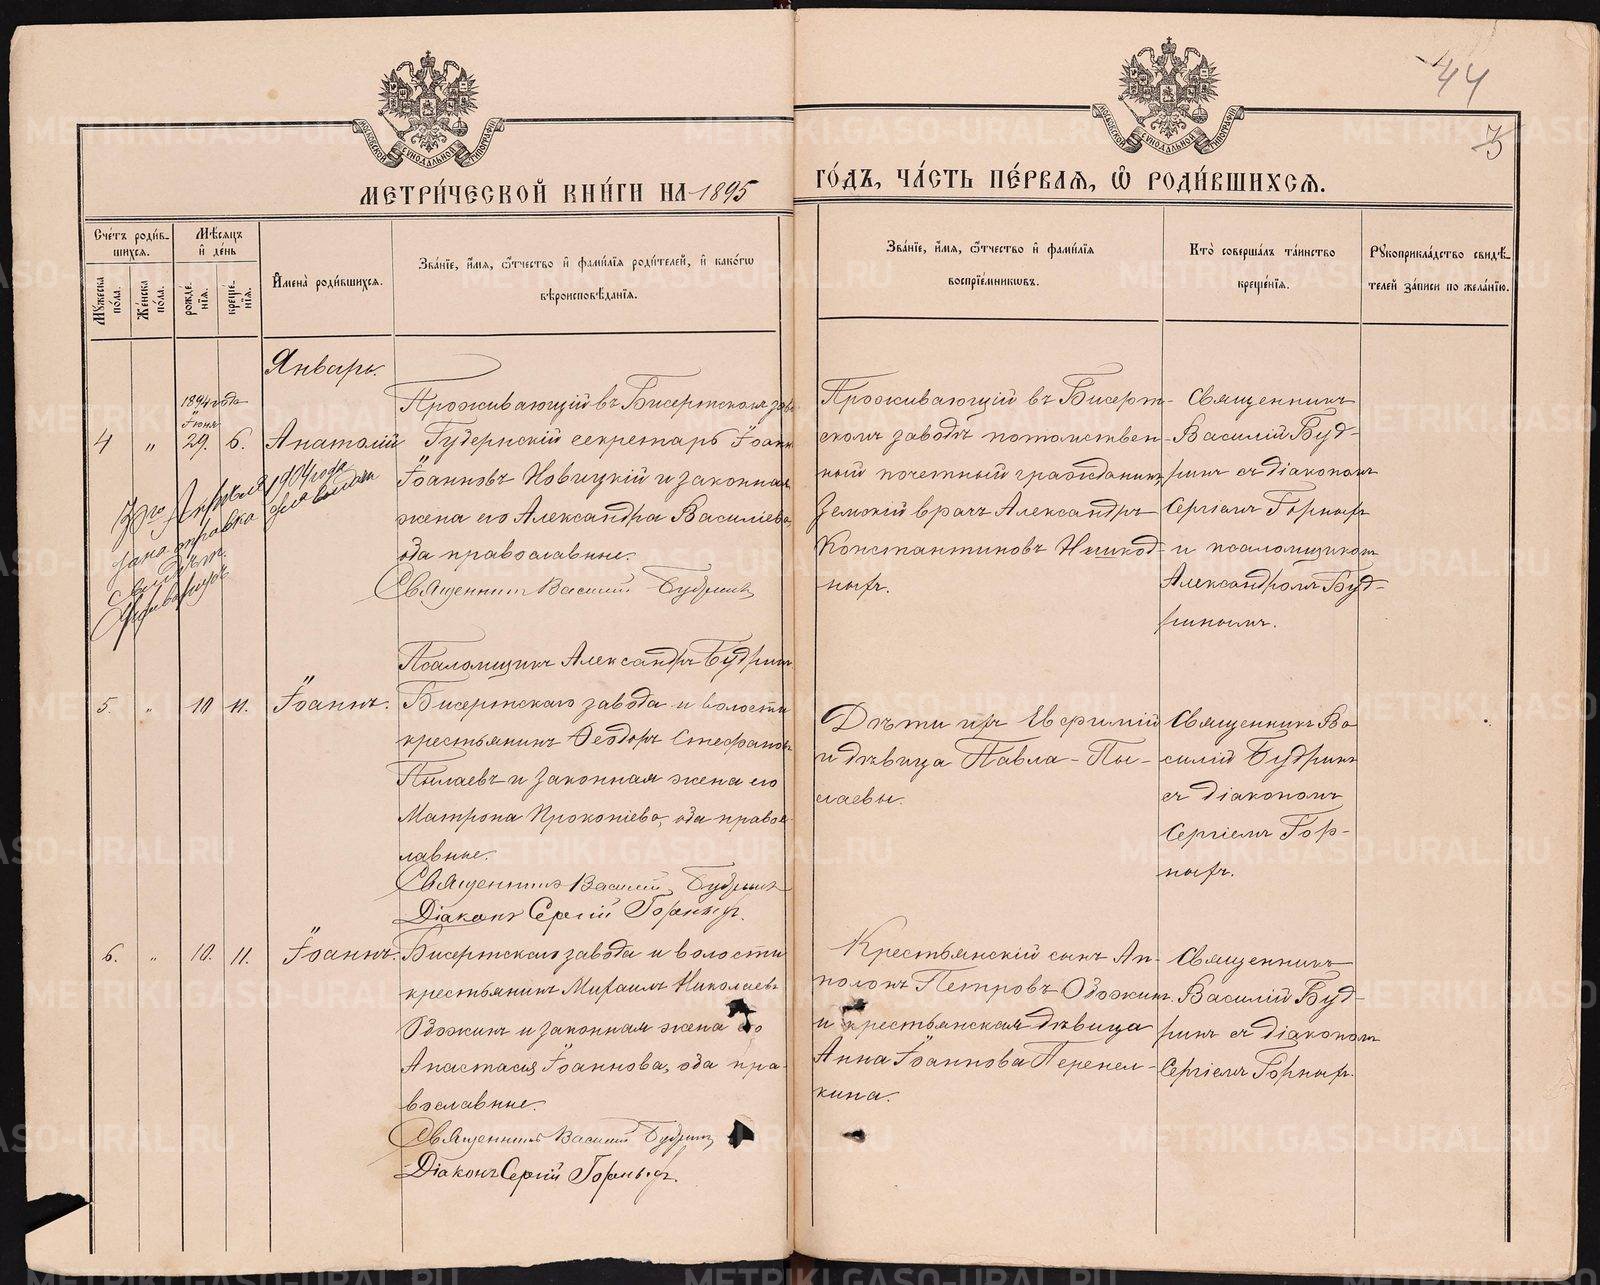 44
75
МЕТРИ́ЧЕСКОЙ КНИ́ГИ НА 1895
ГО́ДЪ, ЧА́СТЬ ПЕ́РВАЯ, Ѿ РОДИ́ВШИХСЯ.
МОСКОВСКОЙ СѴНОДАЛЬНОЙ ТИПОГРАФІИ
МОСКОВСКОЙ СѴНОДАЛЬНОЙ ТИПОГРАФІИ
Сче́тъ роди́в-
шихся.
Мѣ́сяцъ
и҆ де́нь
Му́жеска
по́ла.
Же́нска
по́ла.
рожде́-
нїя.
креще́-
нїя.
И҆мена̀ роди́вшихся.
Зва́нїе, и҆́мя, ѻ҆́тчество и҆ фами́лїя роди́телей, и҆ како́гѡ
вѣроисповѣ́данїя.
Зва́нїе, и҆́мя, ѻ҆́тчество и҆ фами́лїя
воспрїе́мниковъ.
Кто̀ соверша́лъ та́инство
креще́нїя.
Рꙋкоприкла́дство свидѣ́-
телей за́писи по жела́нїю.
Январь.
1894 года
Іюня
4 " 29. 6. Анатолій
Проживающій въ Бисертском заво
Губернскій секретарь Іоанн
Іоанновъ Новицкій и законная
жена его Александра Василіева,
оба православные.
Священникъ Василій Будринъ
Проживающій въ Бисерт-
скомъ заводѣ потомствен-
ный почетный гражданинъ
Земскій врачъ Александръ
Константиновъ
ныхъ.
Священникъ
Василій Буд-
ринъ съ діакономъ
Сергіемъ Горныхъ
и псаломщикомъ
Александромъ Буд-
ринымъ.
Апрѣля 1904 года
справка
Псаломщикъ Александръ Будринъ
5. " 10 11. Іоаннъ.
Бисертскаго завода и волости
крестьянинъ Ѳеодоръ Стефановъ
Пылаевъ и законная жена его
Матрона Прокопіева, оба право-
славные.
Священникъ Василій Будринъ
Діаконъ Сергій Горныхъ.
Дѣти ихъ Евфимій
и дѣвица Павла - Пы-
лаевы.
Священникъ Ва
силій Будринъ
съ діакономъ
Сергіемъ Гор-
ныхъ.
6. " 10. 11. Іоаннъ.
Бисертскаго завода и волости
крестьянинъ Михаилъ Николаевъ
Одожин и законная жена его
Анастасія Іоаннова, оба пра-
вославные.
Священникъ Василій Будринъ
Діаконъ Сергій Горныхъ.
Крестьянскій сынъ Ап-
полонъ Петровъ Одожин.
и крестьянская дѣвица
Анна Іоаннова Перепел-
кина.
Священникъ
Василій Буд-
ринъ съ діакономъ
Сергіемъ Горныхъ.
METRIKI.GASO-URAL.RU